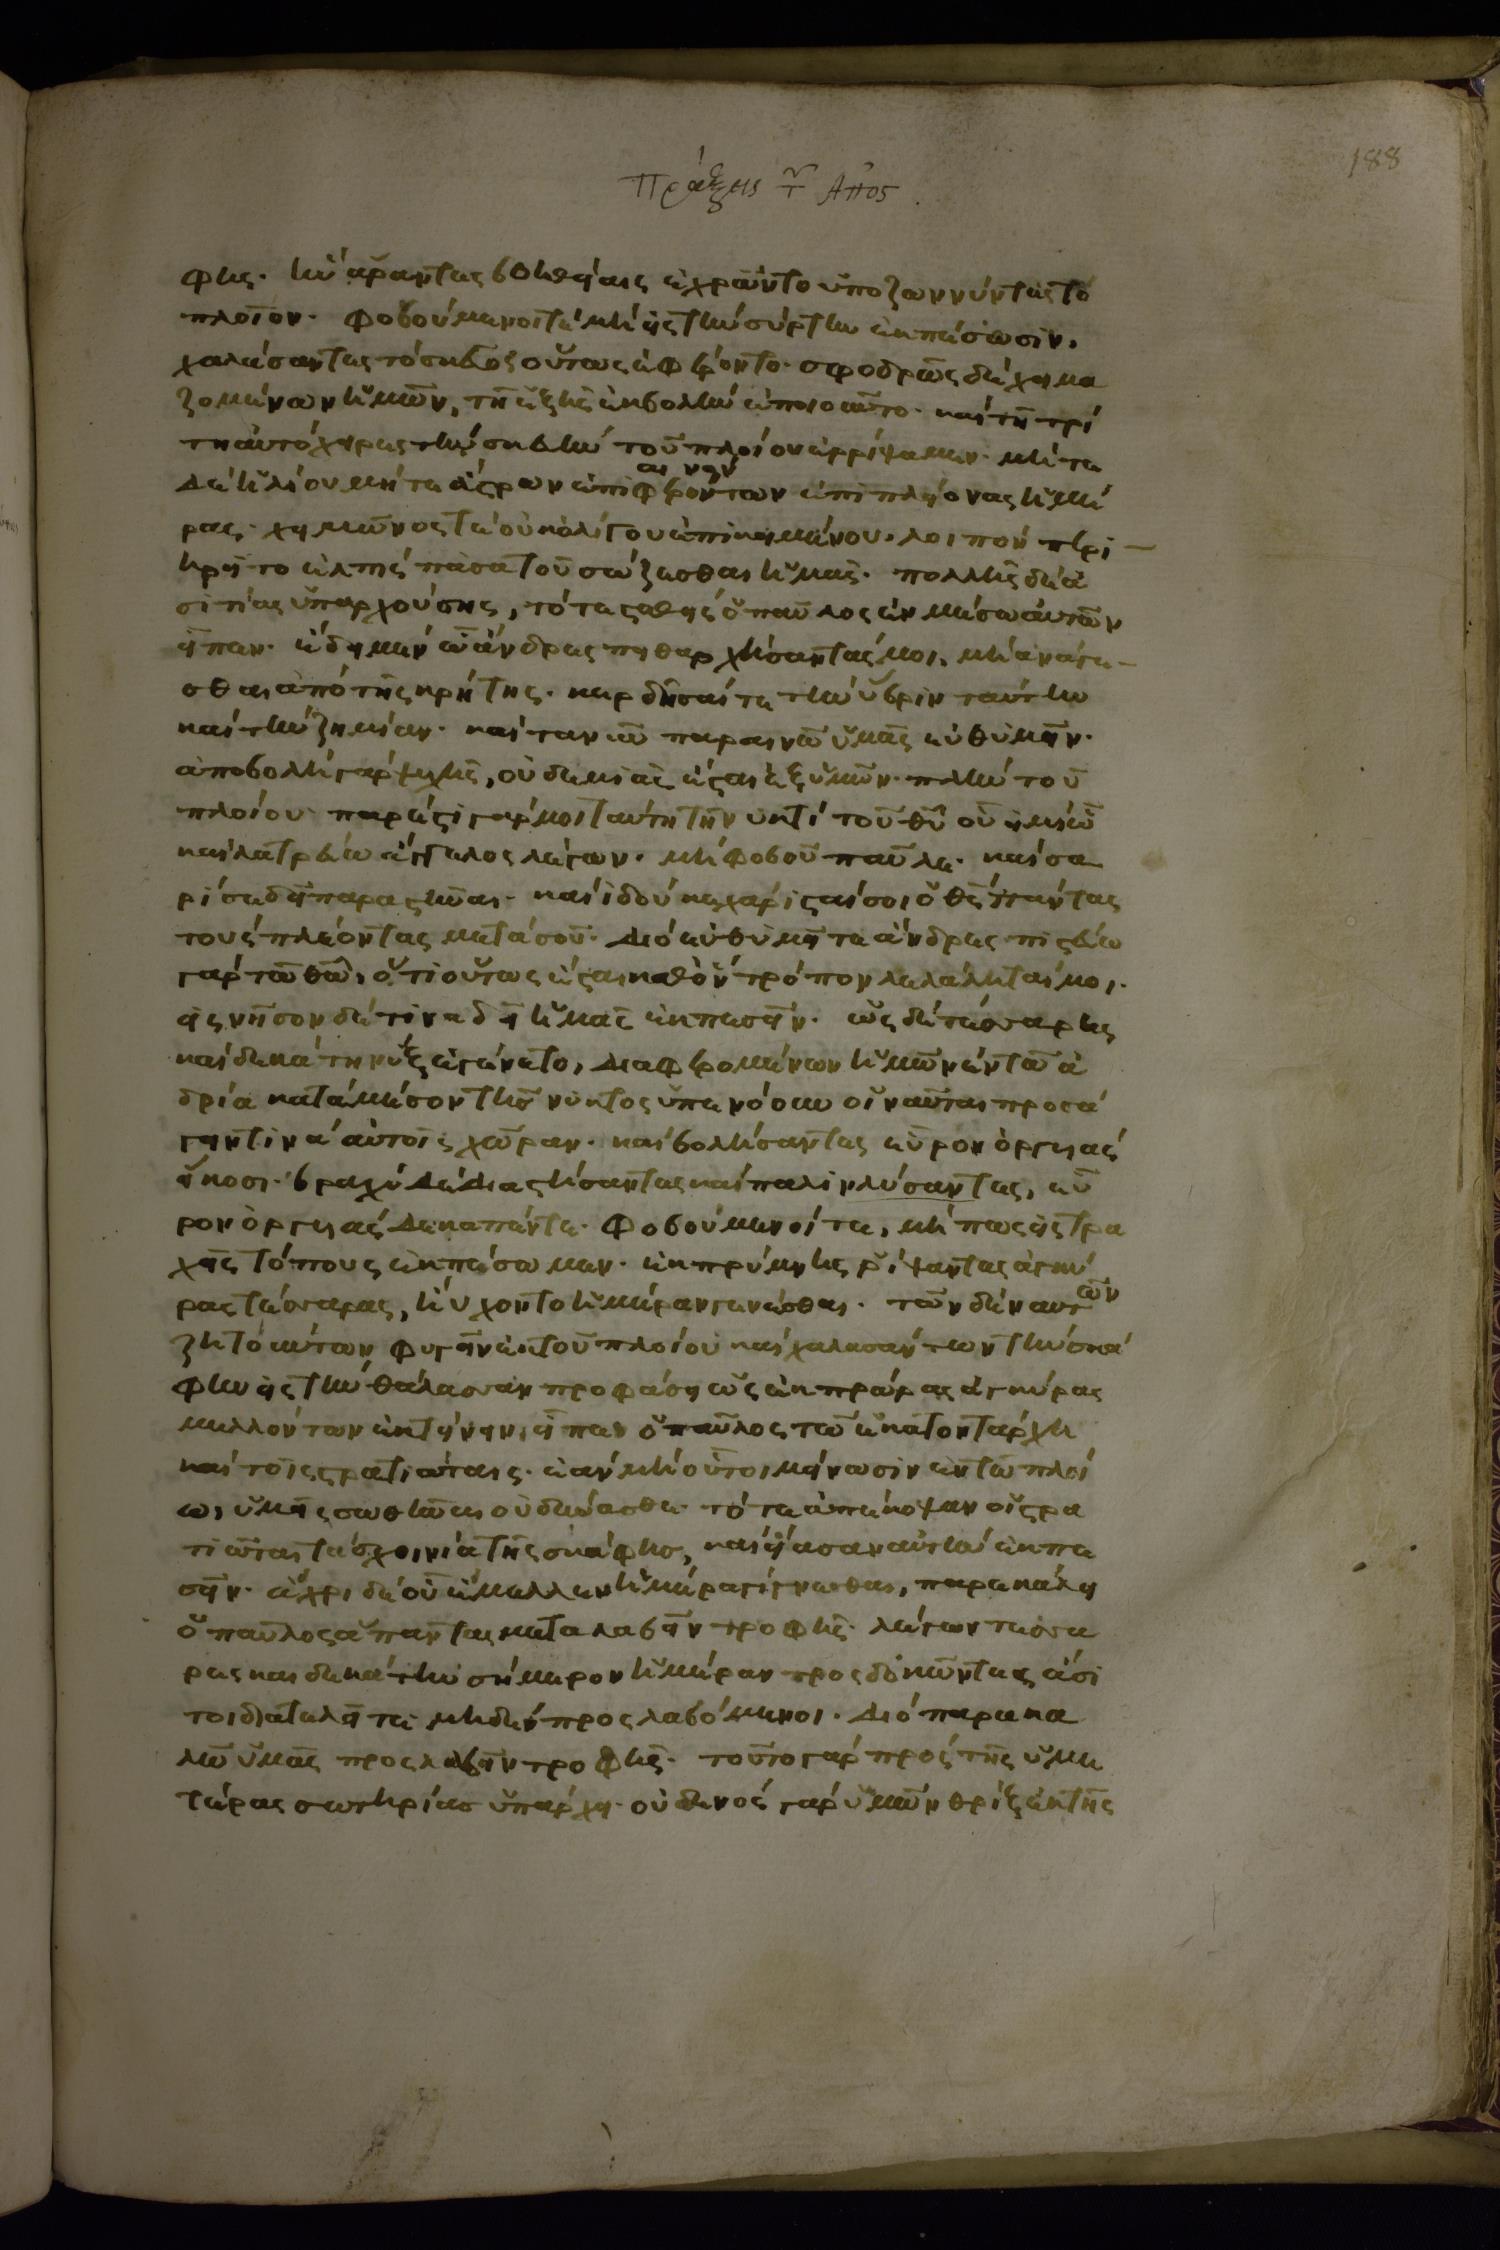 Πράξεις τ Αποσ
188
φης· ἣν ἄραντες βοηθείαις ἐχρῶντο ὑποζωννύντες τὸ
πλοῖον· φοβούμενοί τε μὴ εἰς τὴν σύρτην ἐκπέσωσιν,
χαλάσαντες τὸ σκεῦος οὕτως ἐφέροντο· σφοδρῶς δὲ χειμα
ζομένων ἡμῶν, τῇ ἑξῆς ἐκβολὴν ἐποιοῦντο· καὶ τῇ τρί
τῃ αὐτόχειρες τὴν σκευὴν τοῦ πλοίου ἐρρίψαμεν· μήτε
δὲ ἡλίου μήτε ἄστρων ἐπιφερόντων ἐπὶ πλείονας ἡμέ
ρας· χειμῶνός τε οὐκ ὀλίγου ἐπικειμένου· λοιπὸν περι
ηρεῖτο ἐλπὶς πᾶσα τοῦ σώζεσθαι ἡμᾶς· πολλῆς δὲ ἀ
σιτίας ὑπαρχούσης, τότε σταθεὶς ὁ παῦλος ἐν μέσω αὐτῶν
εἶπεν· ἔδει μὲν ὦ ἄνδρες πειθαρχήσαντάς μοι, μὴ ἀνάγε
σθαι ἀπὸ τῆς κρήτης· κερδῆσαί τε τὴν ὕβριν ταύτην
καὶ τὴν ζημίαν· καὶ τανῦν παραινῶ ὑμᾶς εὐθυμεῖν·
ἀποβολὴ γὰρ ψυχῆς, οὐδεμιᾶς ἔσται ἐξ ὑμῶν· πλὴν τοῦ
πλοίου· παρέστι γάρ μοι ταύτη τῆ νυκτὶ τοῦ θῦ οὗ εἰμὶ ὦ
καὶ λατρεύω ἄγγελος λέγων· μὴ φοβοῦ παῦλε· καίσα
ρί σε δεῖ παραστῆναι· καὶ ἰδοὺ κεχάρισταί σοι ὁ θς πάντας
τοὺς πλέοντας μετὰ σοῦ· διὸ εὐθυμεῖτε ἄνδρες· πιστεύω
γὰρ τῶ θῶ, ὅτι οὕτως ἔσται καθ' ὃν τρόπον λελάληταί μοι·
εἰς νῆσον δέ τινα δεῖ ἡμᾶς ἐκπεσεῖν· ὡς δὲ τέσσαρης
καὶ δεκάτη νὺξ ἐγένετο, διαφερομένων ἡμῶν ἐν τῶ ἀ
δρία κατὰ μέσον τῆς νυκτὸς ὑπενόουν οἱ ναῦται προσά
γειν τινὰ αὐτοῖς χῶραν· καὶ βολήσαντες εὗρον ὀργυιὰς
εἴκοσι· βραχὺ δὲ διαστήσαντες καὶ πάλιν λύσαντες, εὗ
ρον ὀργυιὰς δεκαπέντε· φοβούμενοί τε, μή πως εἰς τρα
χεῖς τόπους ἐκπέσωμεν· ἐκ πρύμνης ῥίψαντες ἀγκύ
ρας τέσσαρας, ηὔχοντο ἡμέραν γενέσθαι· τῶν δὲ ναυτῶν
ζητούντων φυγεῖν ἐκ τοῦ πλοίου καὶ χαλασάντων τὴν σκά
φην εἰς τὴν θάλασσαν προφάσει ὡς ἐκ πρώρας ἀγκύρας
μελλόντων ἐκτείνειν, εἶπεν ὁ παῦλος τῶ ἑκατοντάρχη
καὶ τοῖς στρατιώταις· ἐὰν μὴ οὗτοι μείνωσιν ἐν τῶ πλοί
ω, ὑμεῖς σωθῆναι οὐ δύνασθε· τότε ἀπέκοψαν οἱ στρα
τιῶται τὰ σχοινία τῆς σκάφης, καὶ εἴασαν αὐτὴν ἐκπε
σεῖν· ἄχρι δὲ οὗ ἔμελλεν ἡμέρα γίγνεσθαι, παρεκάλει
ὁ παῦλος ἅπαντας μεταλαβεῖν τροφῆς· λέγων τέσσα
ρες και δεκάτην σήμερον ἡμέραν προσδοκῶντες ἄσι
τοι διατελεῖτε μηδὲν προσλαβόμενοι· διὸ παρακα
λῶ ὑμᾶς προσλαβεῖν τροφῆς· τοῦτο γὰρ πρὸς τῆς ὑμε
τέρας σωτηρίας ὑπάρχει· οὐδενὸς γὰρ ὑμῶν θρὶξ ἐκ τῆς